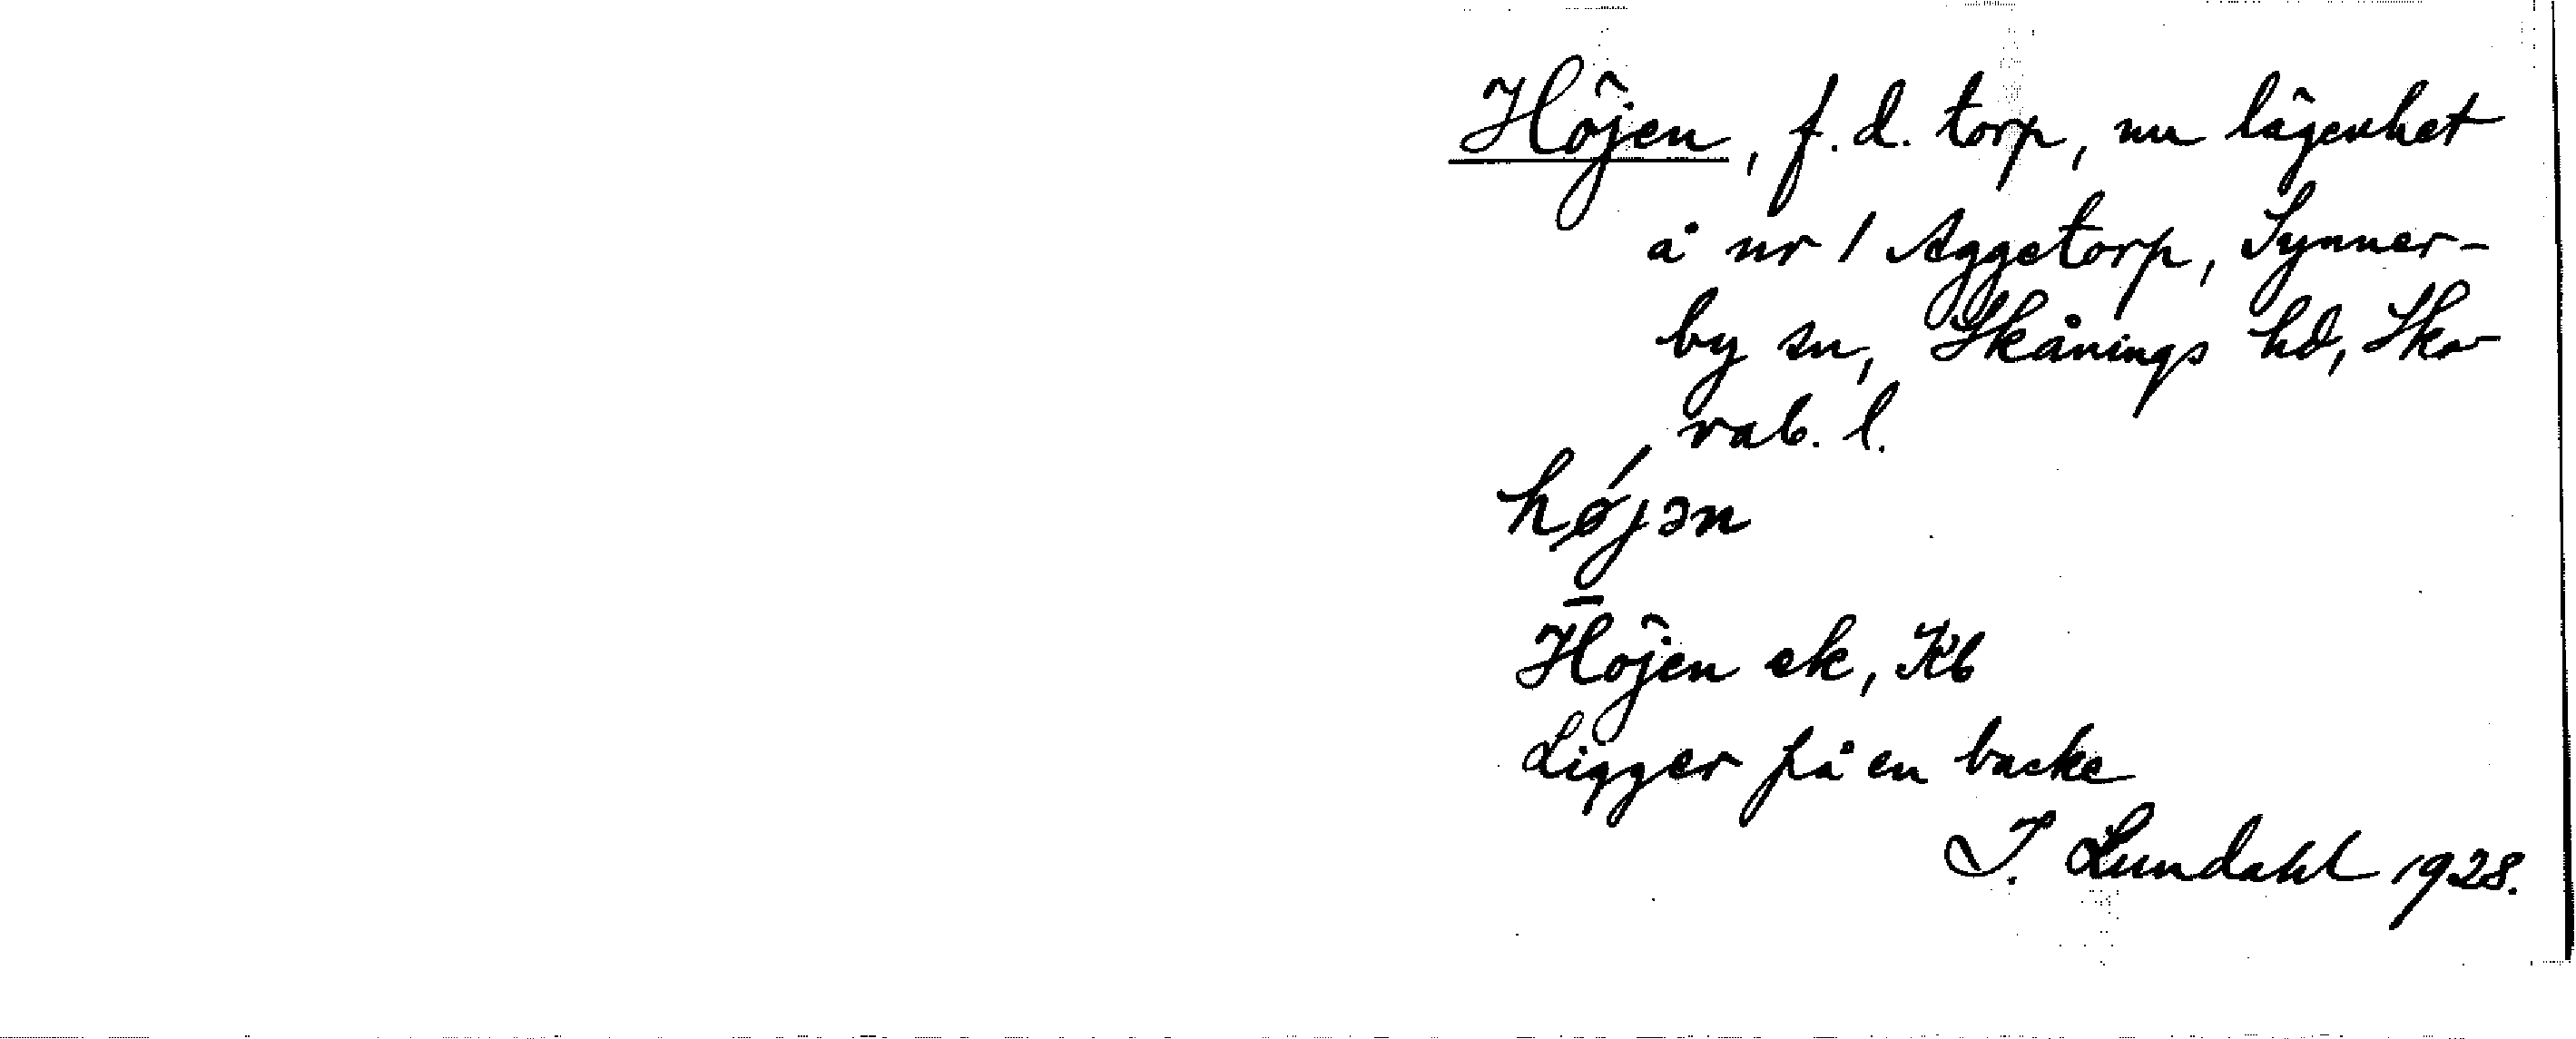 Höjen, f. d. torp, nu lägenhet
å nr 1 Aggetorp, Synner-
by sn, Skånings hd, Ska-
rab. l.
hǿjən
Höjen ek, Kb
Ligger på en backe
I. Lundahl 1928.